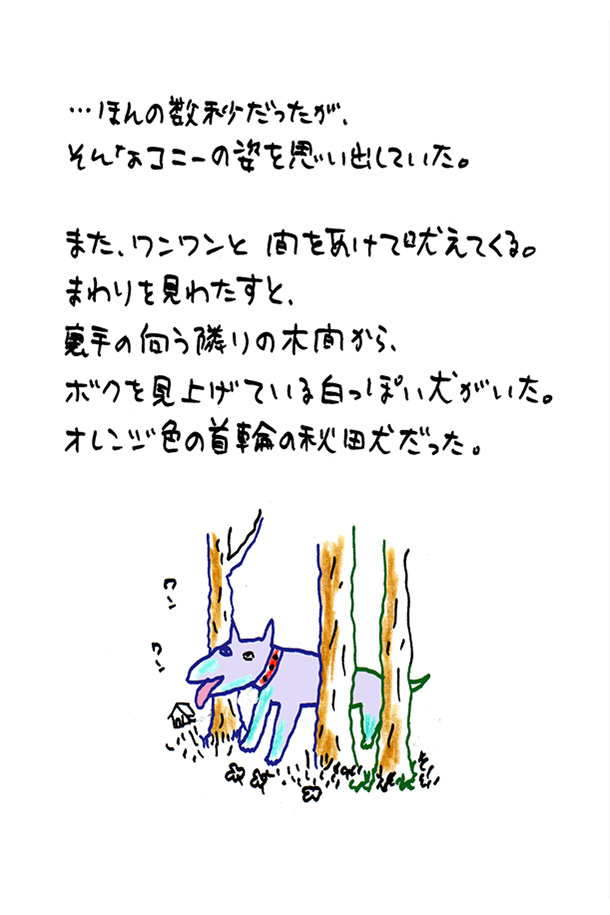 …ほんの数秒だったが、
そんなコニーの姿を思い出していた。
また、ワンワンと 間をあけて吠えてくる。
まわりを見わたすと、
裏手の向う隣りの木間から、
ボクを見上げている白っぽい犬がいた。
オレンジ色の首輪の秋田犬だった。
ワン
ワン